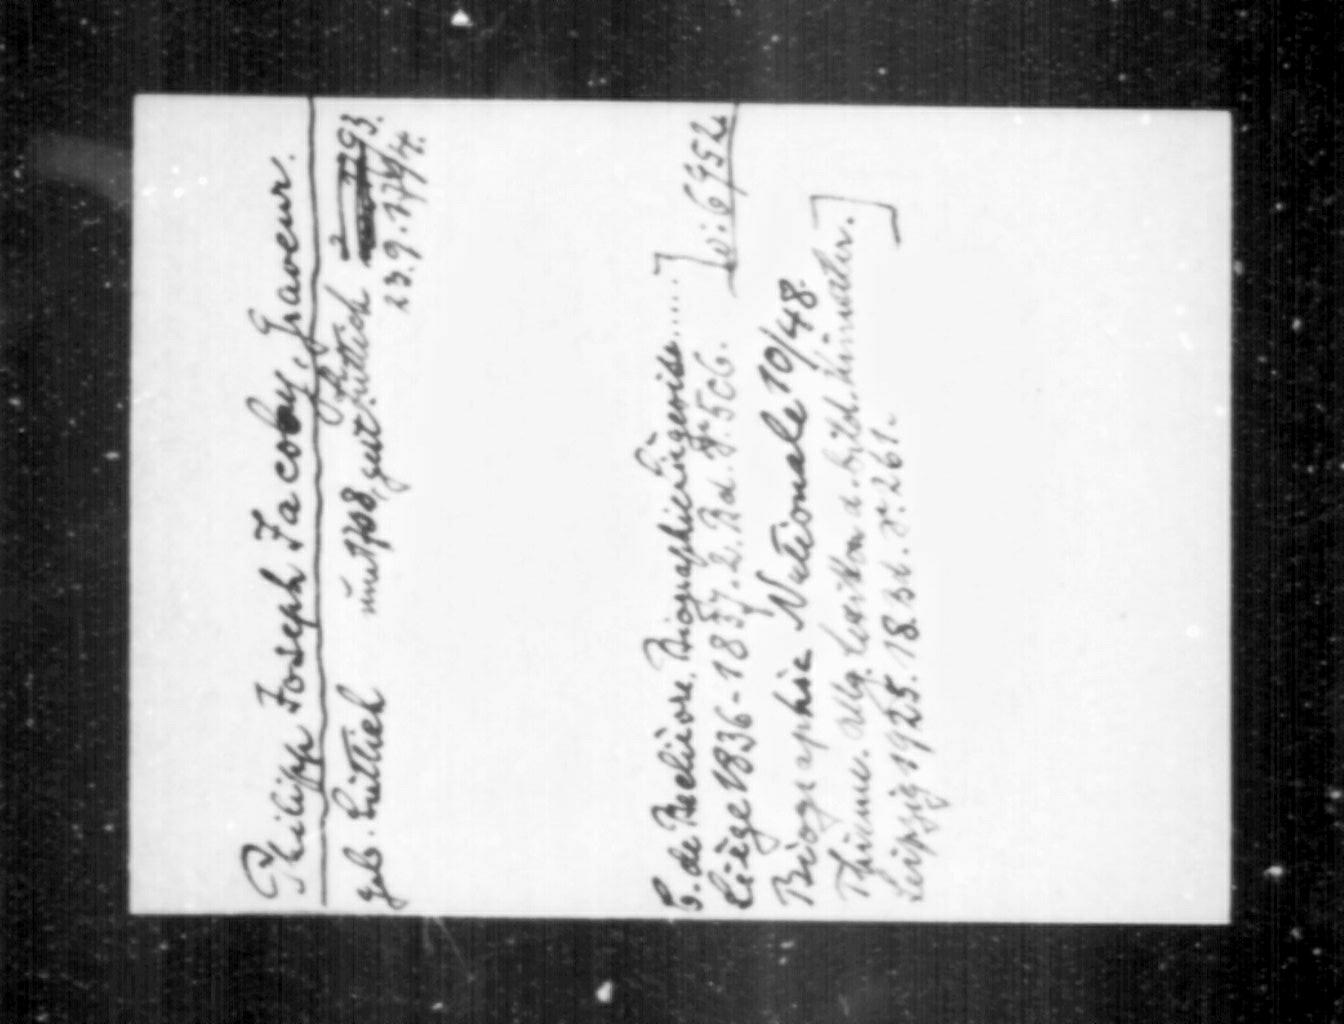 Philipp Joseph Jacoby, Graveur.
geb. Lüttich um 1708, gest. Lüttich 1793.
23.9.1774.
C. de Becdièvre. Biographie Liégeoise.....]
Liège 1836-1837. 2. Bd. S. 506. [W: 6952
Biographie Nationale 10/48.
Thieme. Allg. Lexikon d. bild. Künstler.]
Leipzig 1925. 18. Bd. S. 261.